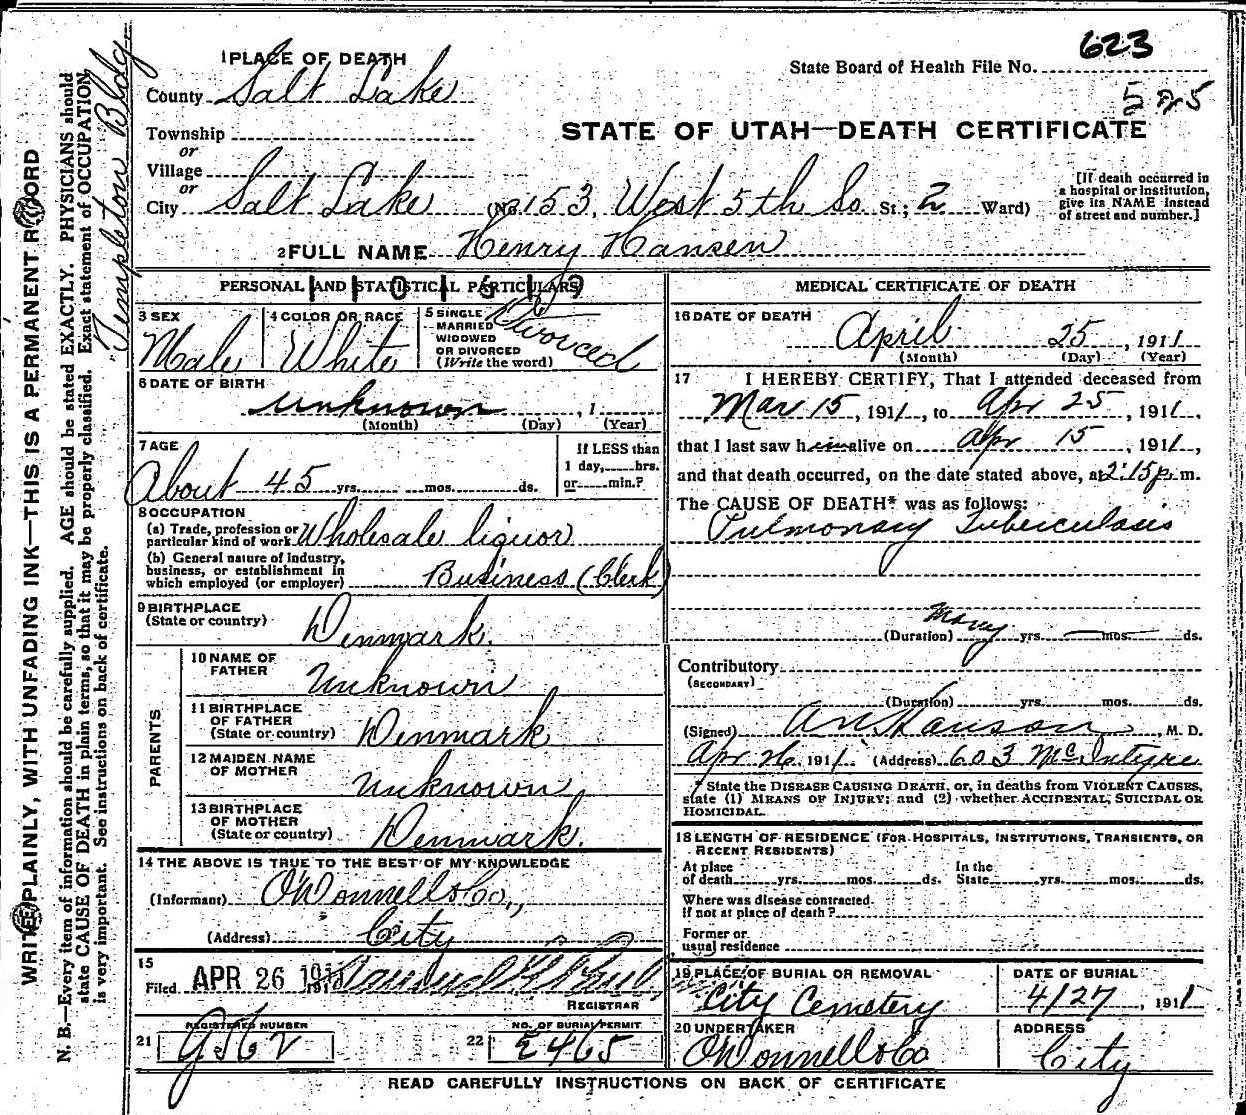 623
State Board of Health File No.
525
1 PLACE OF DEATH
County Salt Lake
Township
or
Village
or
City Salt Lake (No. 153, West 5th So. St.; 2 Ward)
STATE OF UTAH—DEATH CERTIFICATE
[If death occurred in
a hospital or institution,
give its NAME instead
of street and number.]
2 FULL NAME Henry Hansen
PERSONAL AND STATISTICAL PARTICULARS
3 SEX
Male
4 COLOR OR RACE
White
5 SINGLE
MARRIED
WIDOWED
OR DIVORCED
(Write the word)
Divorced
6 DATE OF BIRTH
unknown, 1
(Month) (Day) (Year)
7 AGE
About 45 yrs. mos. ds.
If LESS than
1 day, hrs.
or min.?
8 OCCUPATION
(a) Trade, profession or
particular kind of work Wholesale liquor
(b) General nature of industry,
business, or establishment in
which employed (or employer) Business (Clerk)
9 BIRTHPLACE
(State or country) Denmark.
PARENTS
10 NAME OF
FATHER Unknown
11 BIRTHPLACE
OF FATHER
(State or country) Denmark
12 MAIDEN NAME
OF MOTHER Unknown
13 BIRTHPLACE
OF MOTHER
(State or country) Denmark.
14 THE ABOVE IS TRUE TO THE BEST OF MY KNOWLEDGE
(Informant) O'Donnell & Co.,
(Address) City
15
Filed APR 26 191
REGISTRAR
21 REGISTERED NUMBER
22 NO. OF BURIAL PERMIT
2465
MEDICAL CERTIFICATE OF DEATH
16 DATE OF DEATH
April 25, 1911
(Month) (Day) (Year)
17 I HEREBY CERTIFY, That I attended deceased from
Mar 15, 1911, to Apr 25, 1911,
that I last saw him alive on Apr 15, 1911,
and that death occurred, on the date stated above, at 2:15 p. m.
The CAUSE OF DEATH* was as follows:
Pulmonary Tuberculosis
(Duration) Many yrs. mos. ds.
Contributory
(SECONDARY)
(Duration) yrs. mos. ds.
(Signed) A N Hanson, M. D.
Apr 26, 1911 (Address) 603 McIntyre
* State the DISEASE CAUSING DEATH, or, in deaths from VIOLENT CAUSES,
state (1) MEANS OF INJURY; and (2) whether ACCIDENTAL, SUICIDAL OR
HOMICIDAL.
18 LENGTH OF RESIDENCE (FOR HOSPITALS, INSTITUTIONS, TRANSIENTS, OR
RECENT RESIDENTS)
At place
of death yrs. mos. ds.
In the
State yrs. mos. ds.
Where was disease contracted
if not at place of death?
Former or
usual residence
19 PLACE OF BURIAL OR REMOVAL
City Cemetery
DATE OF BURIAL
4/27, 1911
20 UNDERTAKER
O'Donnell & Co
ADDRESS
City
READ CAREFULLY INSTRUCTIONS ON BACK OF CERTIFICATE
WRITE PLAINLY, WITH UNFADING INK—THIS IS A PERMANENT RECORD
N. B.—Every item of information should be carefully supplied. AGE should be stated EXACTLY. PHYSICIANS should
state CAUSE OF DEATH in plain terms, so that it may be properly classified. Exact statement of OCCUPATION
is very important. See instructions on back of certificate.
Templeton Bldg